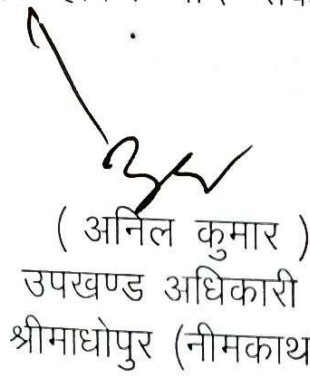 ( अनिल कुमार )
उपखण्ड अधिकारी
श्रीमाधोपुर (नीमकाथ